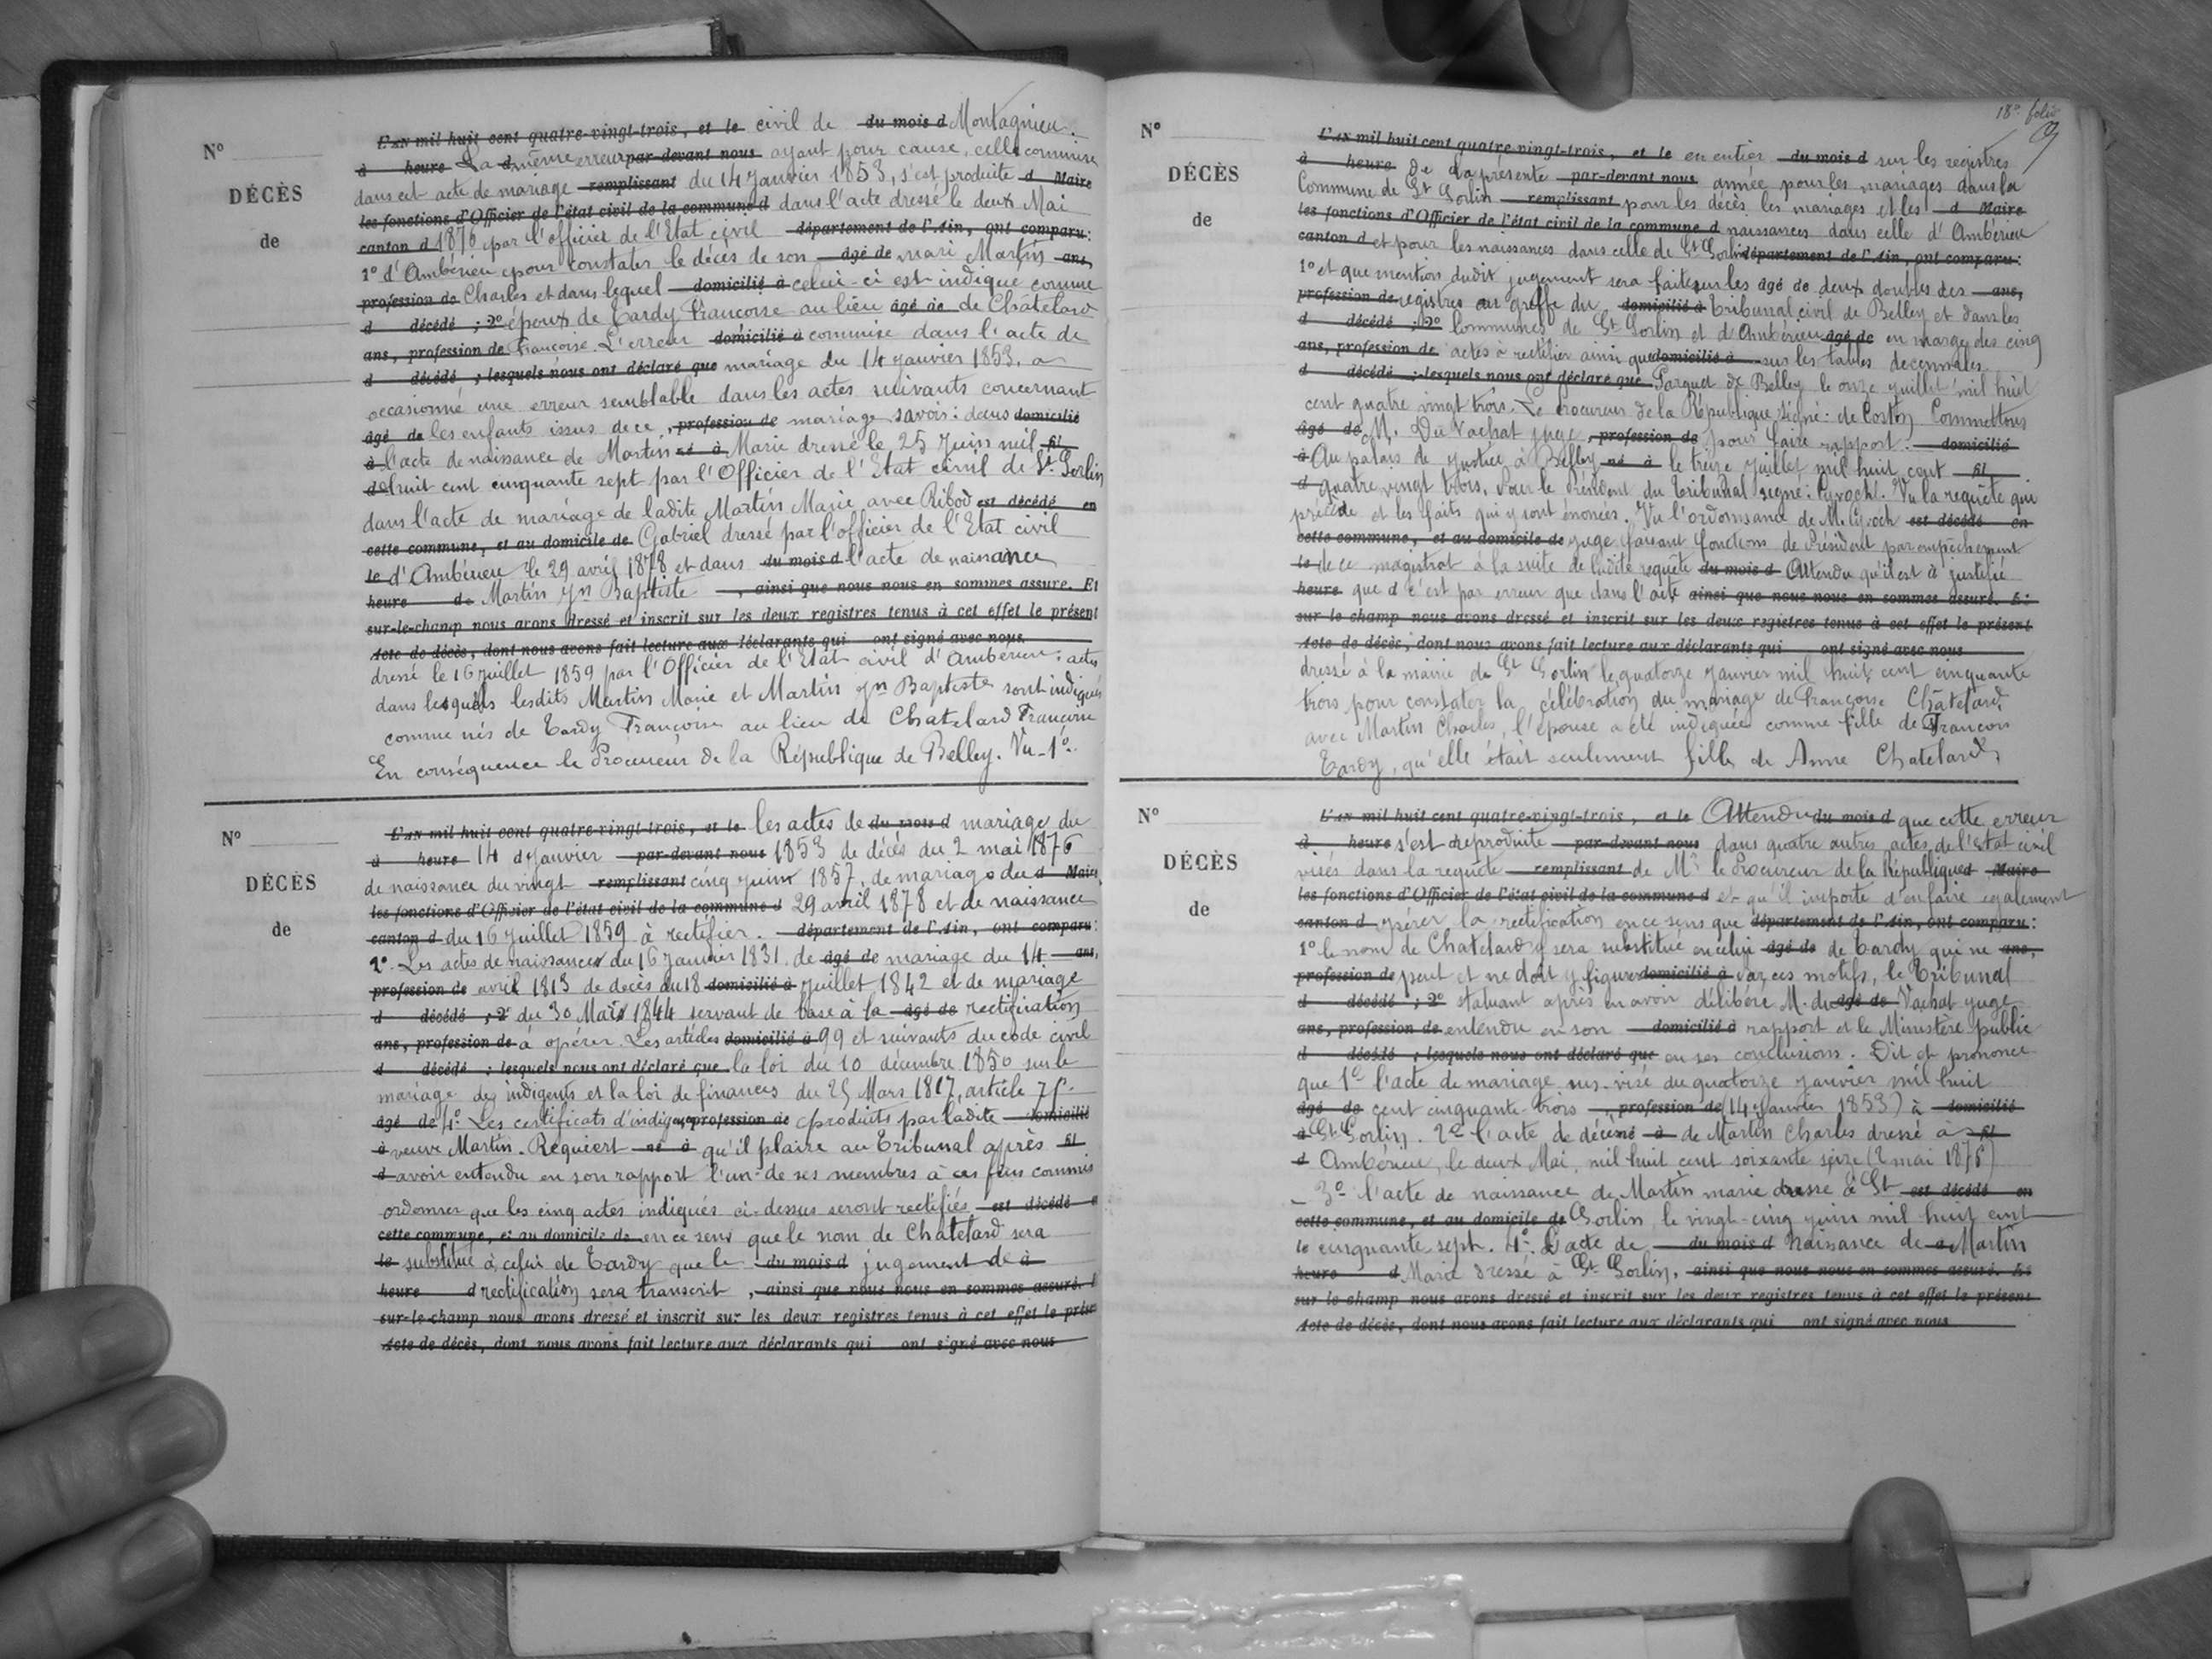 N°
DÉCÈS
de
L'AN mil huit cent quatre-vingt-trois, et le civil de du mois d Montagnieu.
à heure La d même erreur par-devant nous ayant pour cause, celle commise
dans cet acte de mariage remplissant du 14 Janvier 1853, s'est produite d Maire
les fonctions d'Officier de l'état civil de la commune d dans l'acte dressé le deux Mai
canton d 1876 par l'officier de l'Etat civil département de l'Ain, ont comparu:
1° d'Ambérieu pour constater le décès de son âgé de mari Martin ans,
profession de Charles et dans lequel domicilié à celui-ci est indiqué comme
d décédé ; 2° époux de Tardy Françoise au lieu âgé de de Châtelard
ans, profession de Françoise. L'erreur domicilié à commise dans l'acte de
d décédé ; lesquels nous ont déclaré que mariage du 14 janvier 1853, a
occasionné une erreur semblable dans les actes suivants concernant
âgé de les enfants issus de ce , profession de mariage savoir: dans domicilié
à l'acte de naissance de Martin né à Marie dressé le 25 Juin mil fil
d huit cent cinquante sept par l'Officier de l'Etat civil de St. Sorlin
dans l'acte de mariage de ladite Martin Marie avec Ribod est décédé en
cette commune, et au domicile de Gabriel dressé par l'officier de l'Etat civil
le d'Ambérieu le 29 avril 1878 et dans du mois d l'acte de naissance
heure de Martin Jn Baptiste , ainsi que nous nous en sommes assuré. Et
sur-le-champ nous avons dressé et inscrit sur les deux registres tenus à cet effet le présent
Acte de décès, dont nous avons fait lecture aux déclarants qui ont signé avec nous
dressé le 16 juillet 1859 par l'Officier de l'Etat civil d'Ambérieu; actes
dans lesquels lesdits Martin Marie et Martin Jn Baptiste sont indiqués
comme nés de Tardy Françoise au lieu de Chatelard Françoise
En conséquence le Procureur de la République de Belley. Vu _ 1°.
N°
DÉCÈS
de
L'AN mil huit cent quatre-vingt-trois, et le les actes de du mois d mariage du
à heure 14 d Janvier par-devant nous 1853 de décès du 2 mai 1876
de naissance du vingt remplissant cinq juin 1857, de mariage du d Maire
les fonctions d'Officier de l'état civil de la commune d 29 avril 1878 et de naissance
canton d du 16 Juillet 1859 à rectifier. département de l'Ain, ont comparu:
2°. Les actes de naissance du 16 janvier 1831. de âgé de mariage du 14 ans,
profession de avril 1813 de décès du 18 domicilié à juillet 1842 et de mariage
d décédé ; 2° du 30 Mars 1844 servant de base à la âgé de rectification
ans, profession de à opérer. Les articles domicilié à 99 et suivants du code civil
d décédé ; lesquels nous ont déclaré que la loi du 10 décembre 1850 sur le
mariage des indigents et la loi de finances du 25 Mars 1817, article 75.
âgé de 4°. Les certificats d'indigence profession de produits par ladite domicilié
à veuve Martin. Requiert né à qu'il plaire au Tribunal après fil
d avoir entendu en son rapport l'un de ses membres à ces fins commis
ordonner que les cinq actes indiqués ci-dessus seront rectifiés est décédé e
cette commune, et au domicile de en ce sens que le nom de Chatelard sera
le substitué à celui de Tardy que le du mois d jugement de à
heure d rectification sera transcrit , ainsi que nous nous en sommes assuré.
sur-le-champ nous avons dressé et inscrit sur les deux registres tenus à cet effet le prése
Acte de décès, dont nous avons fait lecture aux déclarants qui ont signé avec nous
18° folio
N°
DÉCÈS
de
L'AN mil huit cent quatre-vingt-trois, et le en entier du mois d sur les registres
à heure de d la présente par-devant nous année pour les mariages dans la
Commune de St Sorlin remplissant pour les décès les mariages et les d Maire
les fonctions d'Officier de l'état civil de la commune d naissances dans celle d'Ambérieu
canton d et pour les naissances dans celle de St Sorlin département de l'Ain, ont comparu:
1° et que mention dudit jugement sera faite sur les âgé de deux doubles des ans,
profession de registres au greffe du domicilié à Tribunal civil de Belley et dans les
d décédé ; 2° Communes de St Sorlin et d'Ambérieu âgé de en marge des cinq
ans, profession de actes à rectifier ainsi que domicilié à sur les tables décennales.
d décédé ; lesquels nous ont déclaré que Parquet de Belley le onze juillet mil huit
cent quatre vingt trois. Le Procureur de la République signé: de Coston Commettons
âgé de M. Du Vachat juge , profession de pour faire rapport. domicilié
à Au palais de justice à Belley né à le treize juillet mil huit cent fil
d quatre vingt trois. Pour le Président du Tribunal signé: Cyvoct. Vu la requête qui
précède et les faits qui y sont énoncés. Vu l'ordonnance de M. Cyvoct est décédé en
cette commune, et au domicile de juge faisant fonctions de Président par empêchement
le de ce magistrat à la suite de ladite requête du mois d Attendu qu'il est à justifié
heure que d c'est par erreur que dans l'acte ainsi que nous nous en sommes assuré. Et
sur-le-champ nous avons dressé et inscrit sur les deux registres tenus à cet effet le présent
Acte de décès, dont nous avons fait lecture aux déclarants qui ont signé avec nous
dressé à la mairie de St Sorlin le quatorze janvier mil huit cent cinquante
trois pour constater la célébration du mariage de Françoise Châtelard
avec Martin Charles, l'épouse a été indiquée comme fille de François
Tardy, qu'elle était seulement fille de Anne Chatelard,
N°
DÉCÈS
de
L'AN mil huit cent quatre-vingt-trois, et le Attendu du mois d que cette erreur
à heure s'est d reproduite par-devant nous dans quatre autres actes de l'Etat civil
visés dans la requête remplissant de Mr. le Procureur de la République d Maire
les fonctions d'Officier de l'état civil de la commune d et qu'il importe d'en faire également
canton d opérer la rectification en ce sens que département de l'Ain, ont comparu:
1° le nom de Chatelard y sera substitué à celui âgé de de Tardy qui ne ans,
profession de peut et ne doit y figurer domicilié à par ces motifs, le Tribunal
d décédé ; 2° statuant après en avoir délibéré M. du âgé de Vachat juge
ans, profession de entendu en son domicilié à rapport et le Ministère public
d décédé ; lesquels nous ont déclaré que en ses conclusions. Dit et prononce
que 1° l'acte de mariage sus-visé du quatorze janvier mil huit
âgé de cent cinquante-trois , profession de (14 Janvier 1853) à domicilié
à St Sorlin. 2° l'acte de décès né à de Martin Charles dressé à fil
d Ambérieu, le deux Mai, mil huit cent soixante seize (2 mai 1876)
_ 3° l'acte de naissance de Martin marie dressé à St est décédé en
cette commune, et au domicile de Sorlin le vingt-cinq juin mil huit cent
le cinquante sept. 4°. L'acte de du mois d naissance de à Martin
heure d Marie dressé à St Sorlin, ainsi que nous nous en sommes assuré. Et
sur-le-champ nous avons dressé et inscrit sur les deux registres tenus à cet effet le présent
Acte de décès, dont nous avons fait lecture aux déclarants qui ont signé avec nous